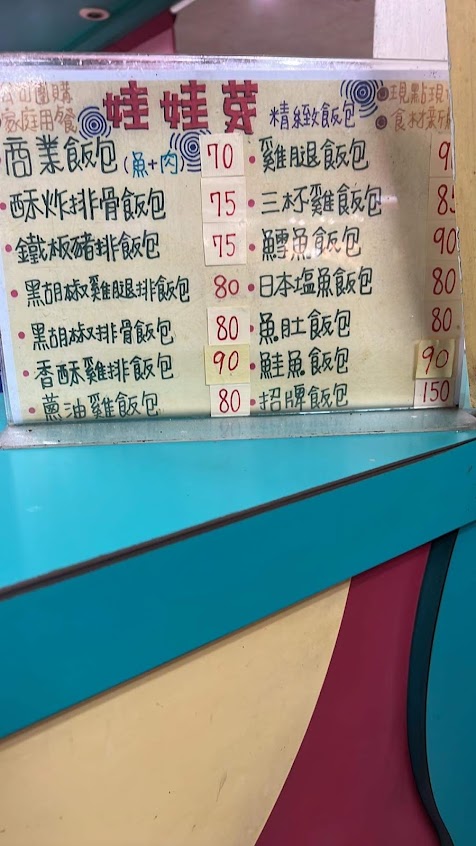 公司團購
家庭用餐
娃娃芽
精緻飯包
現點現
食材新
商業飯包(魚+肉) 70
酥炸排骨飯包 75
鐵板豬排飯包 75
黑胡椒雞腿排飯包 80
黑胡椒排骨飯包 80
香酥雞排飯包 90
蔥油雞飯包 80
雞腿飯包 9
三杯雞飯包 85
鱈魚飯包 90
日本塩魚飯包 80
魚肚飯包 80
鮭魚飯包 90
招牌飯包 150